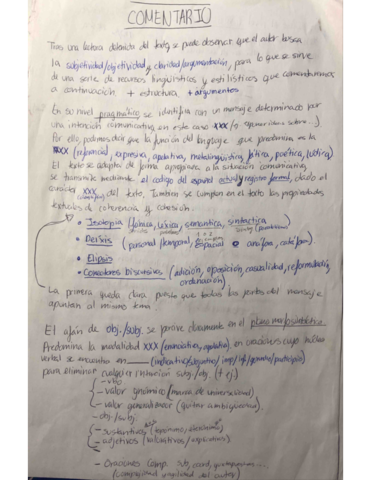 COMENTARIO
Tras una lectura detenida del texto se puede observar que el autor busca
la subjetividad/objetividad y claridad/argumentación, para lo que se sirve
de una serie de recursos lingüísticos y estilísticos que comentaremos
a continuación + estructura + argumentos
En su nivel pragmático se identifica con un mensaje determinado por
una intención comunicativa, en este caso XXX
Por ello, podemos decir que la función del lenguaje que predomina es la
XXX (referencial, expresiva, apelativa, metalingüística, fática, poética, lúdica)
El texto se adapta de forma apropiada a la situación comunicativa,
se transmite mediante el código del español actual y registro formal, dado el
carácter XXX del texto. También se cumplen en el texto las propiedades
textuales de coherencia y cohesión.
• Isotopía (fónica, léxica, semántica, sintáctica)
• Deixis (personal, temporal, espacial anáfora, catáfora)
• Elipsis
• Conectores discursivos (adición, oposición, causalidad, reformulación,
ordenación)
La primera queda clara puesto que todas las partes del mensaje
apuntan al mismo tema.
El afán de obj./subj. se percibe claramente en el plano morfosintáctico
Predomina la modalidad XXX (enunciativa, apelativa) en oraciones cuyo núcleo
verbal se encuentra en (indicativo/subjuntivo/imp/inf/gerundio/participio)
para eliminar cualquier intención subj./obj. (+ ej.)
- valor gnómico (marca de universalidad)
- valor generalizador (quitar ambigüedad)
- obj./subj.
- sustantivos
- adjetivos (valorativos/explicativos)
- Oraciones comp. sub, coord, yuxtapuestas...